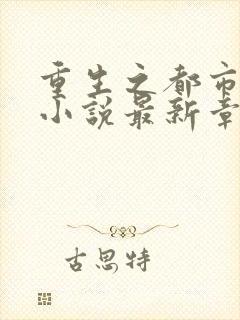 重生之都市
小说最新章
古思特